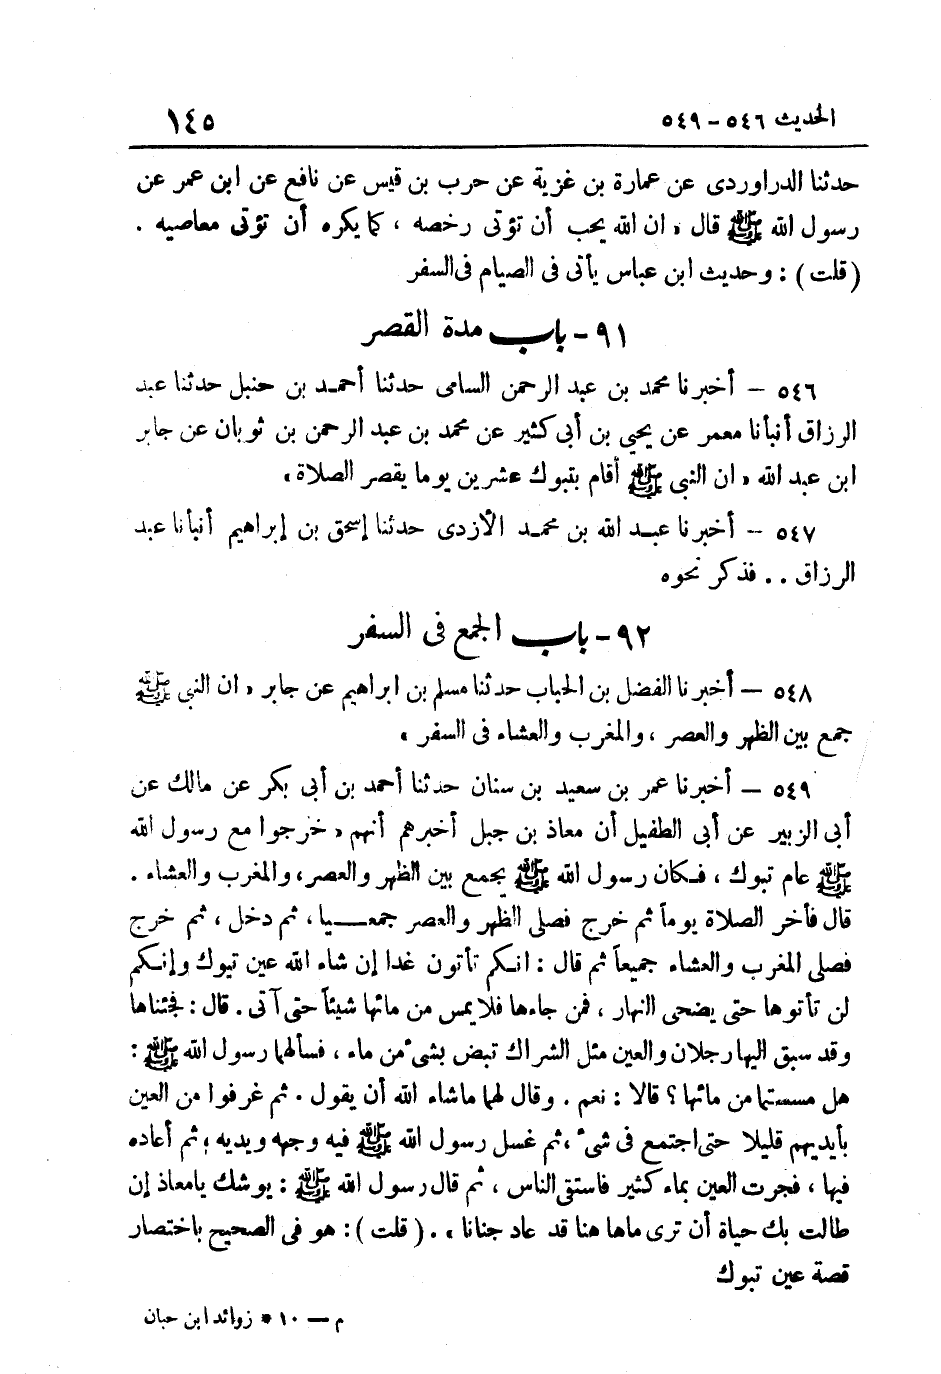 الحديث ٥٤٦ – ٥٤٩ ١٤٥
حدثنا الدراوردى عن عمارة بن غزية عن حرب بن قيس عن نافع عن ابن عمر عن
رسول الله ﷺ قال « ان الله يحب أن تؤتى رخصه ، كما يكره أن تؤتى معاصيه .
( قلت ) : وحديث ابن عباس يأتى فى الصيام فى السفر
٩١ - باب مدة القصر
٥٤٦ – أخبرنا محمد بن عبد الرحمن السامى حدثنا أحمد بن حنبل حدثنا عبد
الرزاق أنبأنا معمر عن يحيى بن أبى كثير عن محمد بن عبد الرحمن بن ثوبان عن جابر
ابن عبد الله « ان النبى ﷺ أقام بتبوك عشرين يوما يقصر الصلاة »
٥٤٧ – أخبرنا عبد الله بن محمد الأزدى حدثنا إسحق بن إبراهيم أنبأنا عبد
الرزاق . . فذكر نحوه
٩٢ - باب الجمع فى السفر
٥٤٨ – أخبرنا الفضل بن الحباب حدثنا مسلم بن ابراهيم عن جابر « ان النبى ﷺ
جمع بين الظهر والعصر ، والمغرب والعشاء فى السفر »
٥٤٩ – أخبرنا عمر بن سعيد بن سنان حدثنا أحمد بن أبى بكر عن مالك عن
أبى الزبير عن أبى الطفيل أن معاذ بن جبل أخبرهم أنهم « خرجوا مع رسول الله
ﷺ عام تبوك ، فكان رسول الله ﷺ يجمع بين الظهر والعصر، والمغرب والعشاء .
قال فأخر الصلاة يوماً ثم خرج فصلى الظهر والعصر جمعيا ، ثم دخل ، ثم خرج
فصلى المغرب والعشاء جميعاً ثم قال : انكم تأتون غدا إن شاء الله عين تبوك وإنكم
لن تأتوها حتى يضحى النهار ، فمن جاءها فلا يمس من مائها شيئاً حتى آتى . قال : فجئناها
وقد سبق اليها رجلان والعين مثل الشراك تبض بشىء من ماء ، فسألهما رسول الله ﷺ :
هل مسستما من مائها ؟ قالا : نعم . وقال لهما ماشاء الله أن يقول . ثم غرفوا من العين
بأيديهم قليلا حتى اجتمع فى شىء ، ثم غسل رسول الله ﷺ فيه وجهه ويديه ؛ ثم أعاده
فيها ، فجرت العين بماء كثير فاستقى الناس ، ثم قال رسول الله ﷺ : يوشك يامعاذ إن
طالت بك حياة أن ترى ماها هنا قد عاد جنانا » . ( قلت ) : هو فى الصحيح باختصار
قصة عين تبوك
م – ١٠ * زوائد ابن حبان